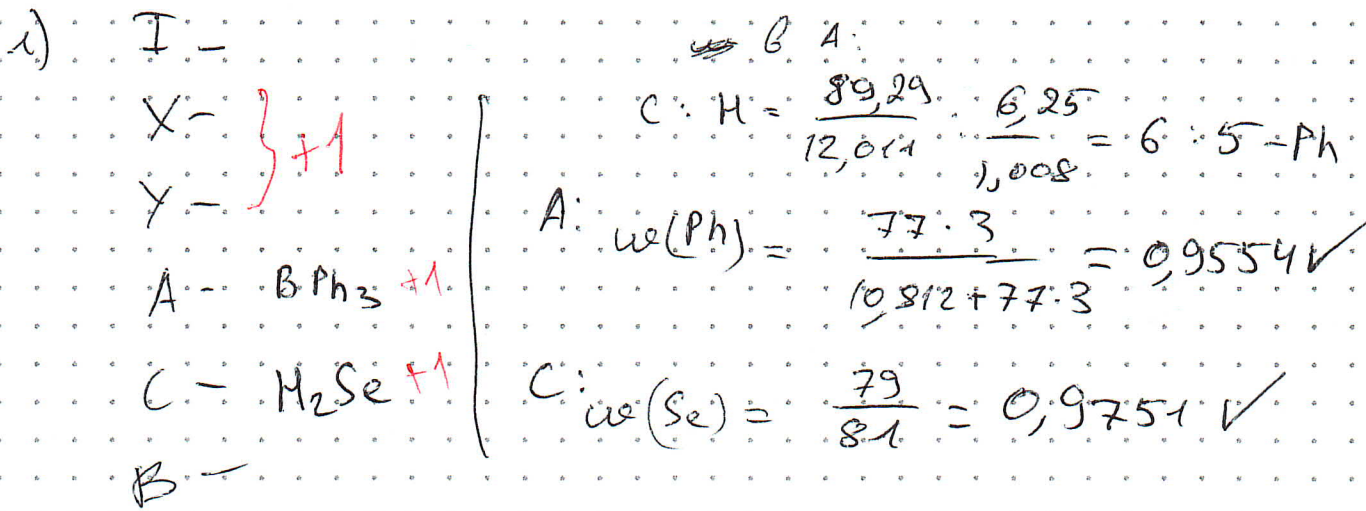 1) I –
X –
Y –
} +1
A – BPh₃ +1
C – H₂Se +1
B –
в A:
C : H = 89,29/12,011 : 6,25/1,008 = 6 : 5 – Ph
A: ω(Ph) = 77·3/(10,812+77·3) = 0,9554 ✓
C: ω(Se) = 79/81 = 0,9751 ✓